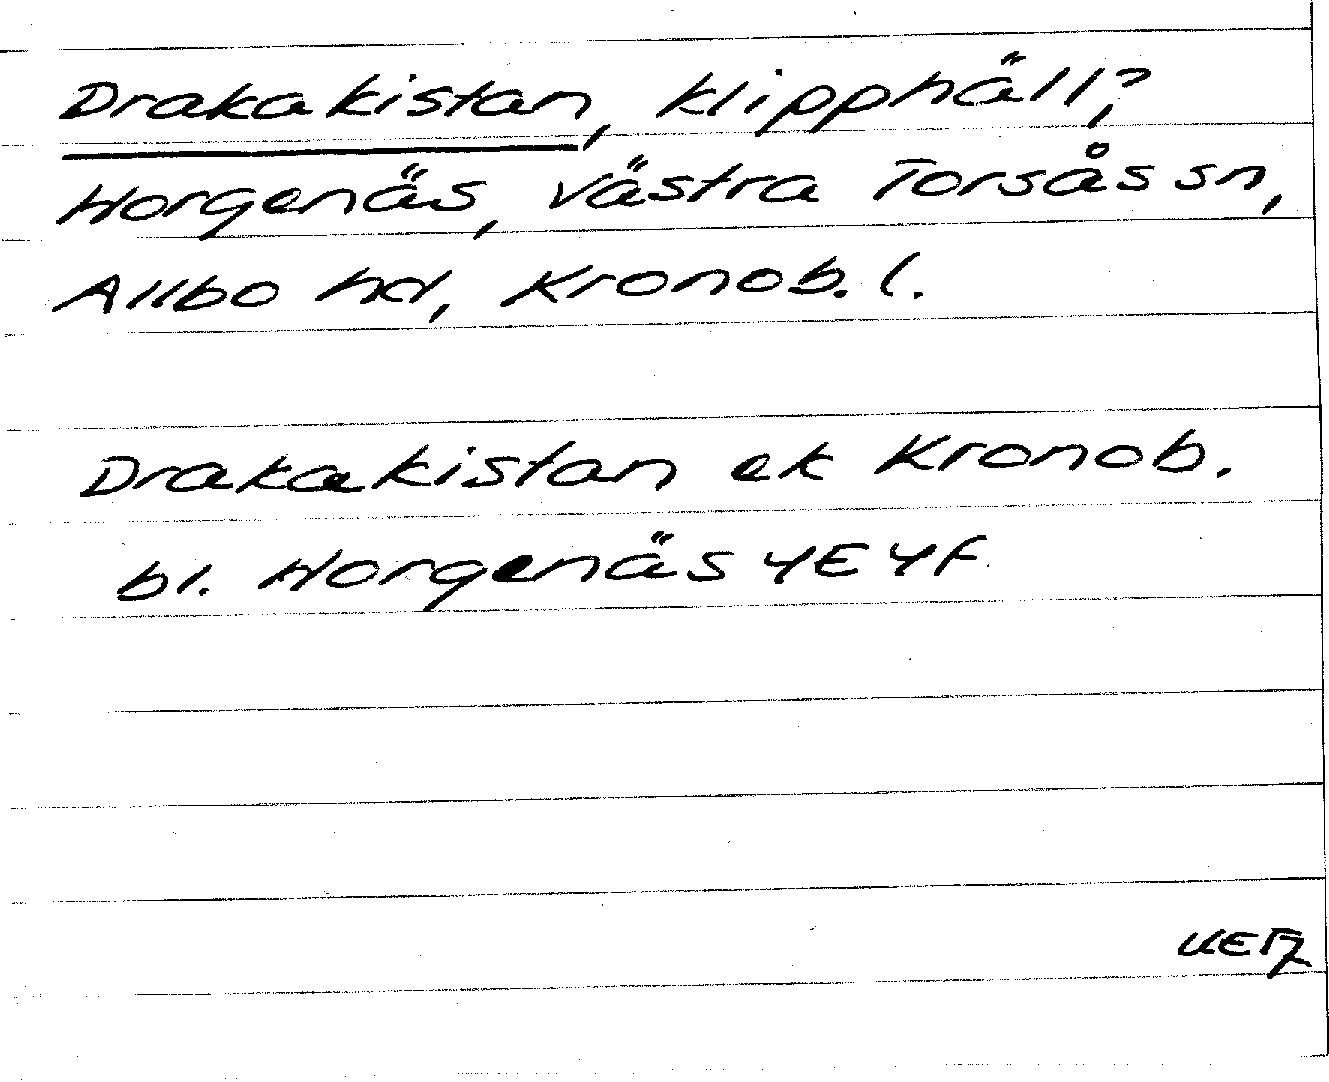 Drakakistan, klipphäll?,
Horgenäs, Västra Torsås sn,
Allbo hd, Kronob. l.
Drakakistan ek Kronob.
bl. Horgenäs 4E 4f